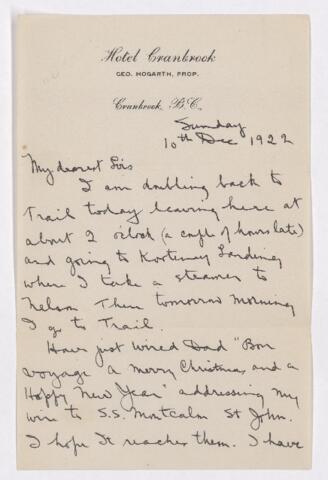 Hotel Cranbrook
GEO. HOGARTH, PROP.
Cranbrook, B.C.
Sunday
10th Dec 1922
My dearest Lois
I am doubling back to
Trail today leaving here at
about 2 o'clock (a couple of hours late)
and going to Kootenay Landing
where I take a steamer to
Nelson Then tomorrow morning
I go to Trail.
Have just wired Dad "Bon
voyage a merry Christmas and a
Happy New Year" addressing my
wire to S.S. Montcalm St John.
I hope it reaches them. I have